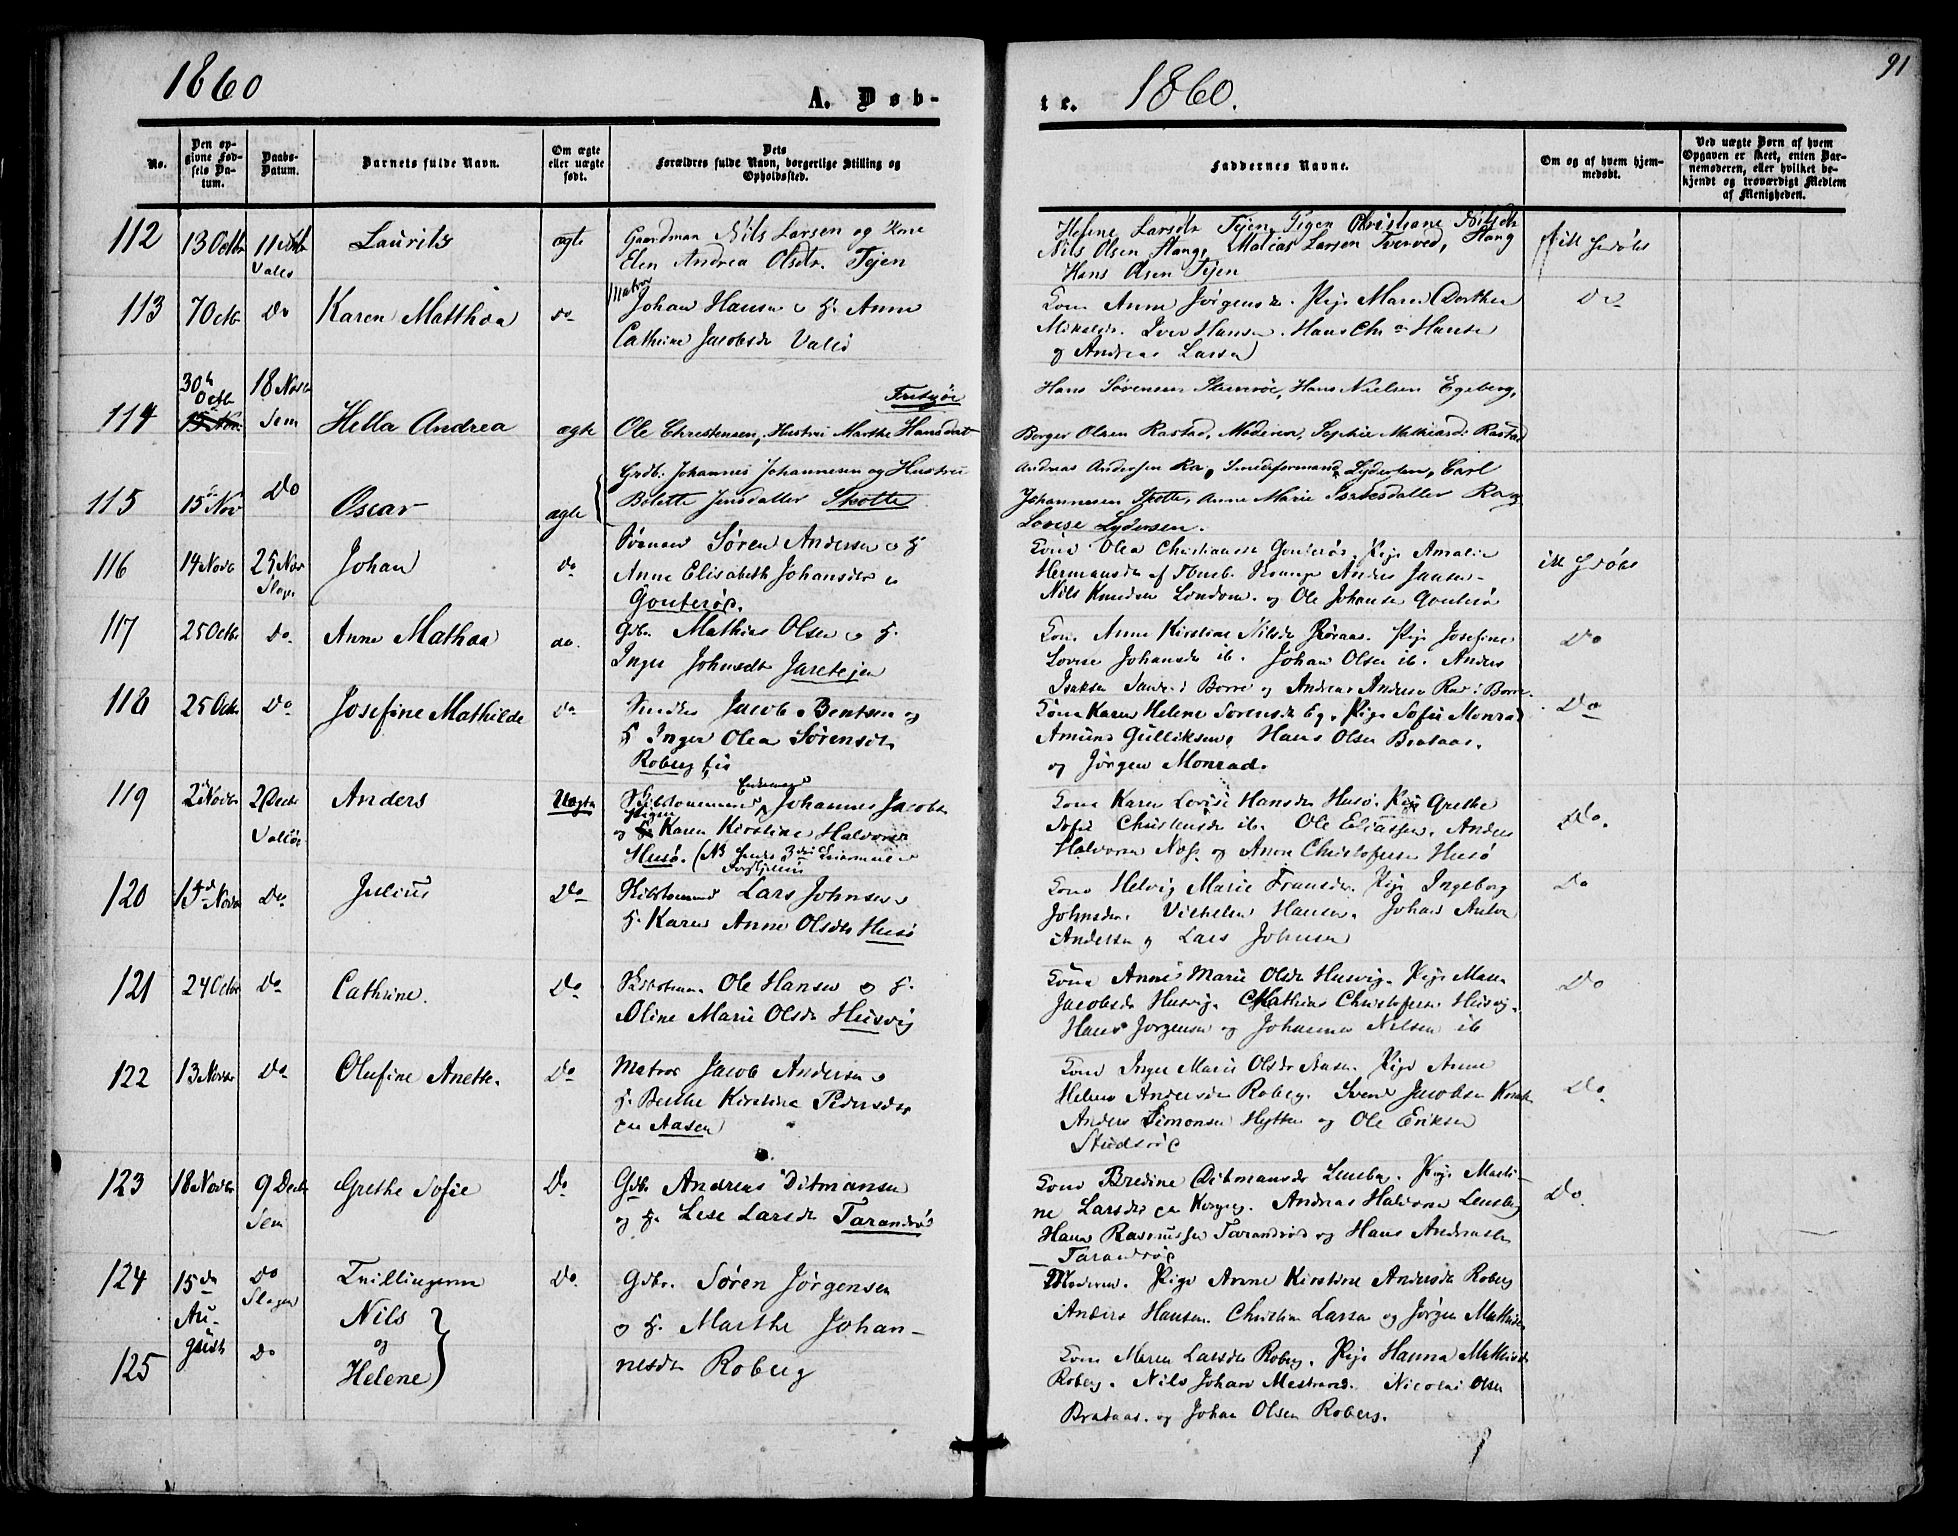 1860
A. Døb-
No.
Den op-
givne Fød-
sels Da-
tum.
Daabs-
Datum.
Barnets fulde Navn.
Om ægte
eller uægte
født.
Dets
Forældres fulde Navn, borgerlige Stilling og
Opholdssted.
112
13 Octbr
11 Novbr
Valø
Laurits
ægte
Gaardman Nils Larsen og Kone
Elen Andrea Olsdtr. Tejen
113
7 Octb
Do
Karen Matthea
do
Matros
Johan Hansen o H. Anne
Cathrine Jacobsdr Valø
114
30te
Octb
15 Nov.
18 Novb
Sem
Hella Andrea
ægte
Fresøe
Ole Christensen, Hustru Marthe Hansdat
115
15 Nov
Do
Oscar
ægte
Grdb. Johannes Johannesen og Hustru
Bolette Jensdatter Skotte
116
14 Novb
25 Nov
Slagen
Johan
do
Søren Andersen o H
Anne Elisabeth Johansdr
Gouterøe.
117
25 Octb
Do
Anne Mathea
do.
Gdbr. Mathias Olsen o H.
Inger Johnsdt Jaretejen
118
25 Octb
Do
Josefine Mathilde
Do
Jacob Bentsen og
H Inger Olea Sørensdt.
Roberg
119
2 Novbr
2 Decbr
Valløe
Anders
Uægte
Enkemand
Johannes Jacobs
Pigen
og Karen Kirstine Halvors
Husø. (NB
120
Novb
Do.
Julius
Do
Lars Johnsen
H. Karen Anne Olsdtr Husø
121
24 Octbr
Do
Cathrine.
Do
Ole Hansen o H.
Oline Marie Olsdr Husvig
122
13 Novbr
Do
Olufine Anette.
Do
Matros Jacob Andersen o
H. Berthe Kirstine Pedersdr
Aasen
123
18 Novbr
9 Decbr
Sem
Grethe Sofie
Do
Gdbr Andreas Ditmansen
og H. Lise Larsdr Tarandrød
124
15de
Au-
gust
Do
Slagen
Tvillingerne
Nils
og
Do.
Gdbr. Søren Jørgensen
o H. Marthe Johan-
125
Do
Helene
nesdr Roberg
91
te.
1860.
Faddernes Navne.
Om og af hvem hjem-
medøbt.
Ved uægte Børn af hvem
Opgaven er skeet, enten Bar-
nemoderen, eller hvilket be-
kjendt og troværdigt Medlem
af Menigheden.
Larsdr Tejen, Pigen Christiane Nilsdtr
Nils Olsen Stang, Matias Larsen Tverved, Stang
Hans Olsen Tejen
ikk Hjdøbt
Kone Anne Jørgensdr. Pige Maren Dorthea
Mikelsdr. Iver Hansen. Hans Chr Hansen
og Andreas Larsen
Do
Hans Sørensen, Hans Nielsen Egeberg,
Borger Olsen Rastad, Moderen, Sophie Mathiasd: Rastad
Andreas Andersen Ra, Smedeformand Lydersen, Carl
Johannesen Skotte, Anne Marie datter Ra og
Lovise Lydersen.
Kone Olea Christiansdr Gouterøe. Pige Amalie
Hermansdr af Anders Jansen
Nils Knudsen og Ole Johansen Gouterø
ikk Hjdøbt
Kone Anne Kirstine Nilsdr Røraas. Pige Josefine
Lovise Johansdr ib. Johan Olsen ib. Anders
Isaksen i Borre og Andreas Anderse Ra i Borre
Do
Kone Karen Helene Sørensdr Eg. Pige Sofie Monrad
Amund Gulliksen, Hans Olsen Brataas.
og Jørgen Monrad.
Do
Kone Karen Lovise Hansdr Husø. Pige Grethe
Sofie Christensdr ib. Ole Eliassen. Anders
Halvorsen Næs og Anon Christofersen Husø
Do.
Kone Helvig Marie Fransdr. Pige Ingeborg
Johnsdr. Vilhelm Hansen. Johan Anton
Andersen og Lars Johnsen
Do
Kone Anne Marie Olsdr Husvig. Pige Maren
Jacobsdr Husvig. Mathias Christofersen Husvig.
Hans Jørgensen og Johannes Nilsen ib
Do
Kone Inger Marie Olsdr Aasen. Pige Anne
Helene Andersdr Roberg. Svend Jacobsen
Anders Simonsen Hytten og Ole Eriksen
Studsrøe
Do.
Kone Bredine Ditmansdr Lensberg. Pige Marti-
ne Larsdr Andreas Halvorsen Lensberg
Hans Rasmussen Tarandrød og Hans Andreasen
Tarandrøe
Do.
Moderen. Pige Anne Kirstine Andersdr Roberg
Anders Hansen. Christian Larsen og Jørgen Mathisen
Kone Maren Larsdr Roberg. Pige Hanna Mathisdr
Roberg. Nils Johan Mestrand. Nicolai Olsen
Brataas. og Johan Olsen Roberg.